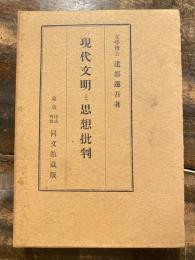 文學博士 遠藤隆吉著
現代文明と思想批判
東京 同文館藏版